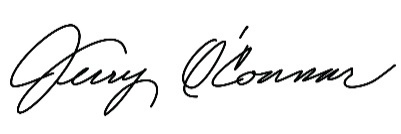 Jerry O'Connor